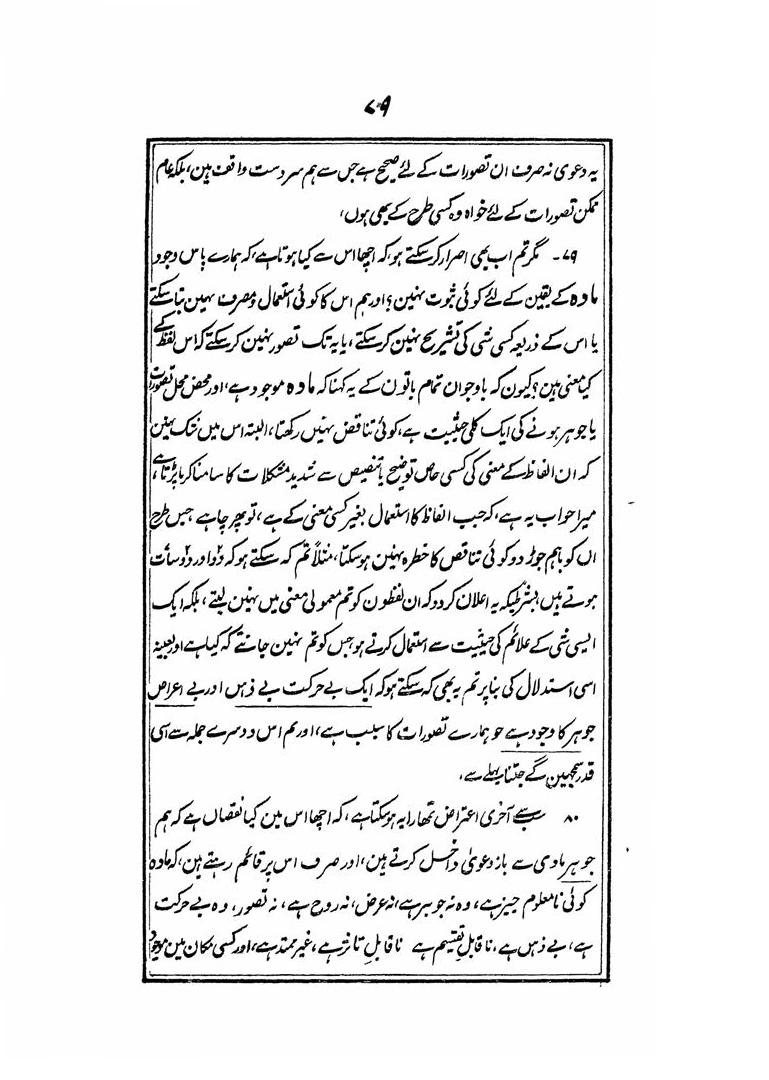 ۷۹
یہ دعوی نہ صرف ان تصورات کے لئے صحیح ہے جن سے ہم سردست واقف ہین، بلکہ تمام
ممکن تصورات کے لئے خواہ وہ کسی طرح کے بھی ہوں،
۷۹- مگر تم اب بھی اصرار کر سکتے ہو، کہ اچھا اس سے کیا ہوتا ہے، کہ ہمارے پاس وجود
مادہ کے یقین کے لئے کوئی ثبوت نہین؟ اور ہم اس کا کوئی استعمال و مصرف نہین بتا سکتے
یا اس کے ذریعہ کسی شی کی تشریح نہین کر سکتے، یا یہ تک تصور نہین کر سکتے کہ اس لفظ کے
کیا معنی ہین؟ کیون کہ باوجو ان تمام باتون کے یہ کہنا کہ مادہ موجود ہے، اور محض محل تصورات
یا جوہر ہونے کی ایک کلی حیثیت ہے، کوئی تناقض نہین رکھتا، البتہ اس میں شک نہین
کہ ان الفاظ کے معنی کی کسی خاص توضیح یا تنصیص سے شدید مشکلات کا سامنا کرنا پڑتا ہے،
میرا جواب یہ ہے، کہ جب الفاظ کا استعمال بغیر کسی معنی کے ہے، تو پھر چاہے جس طرح
ان کو باہم جوڑ دو کوئی تناقص کا خطرہ نہین ہو سکتا، مثلاً تم کہ سکتے ہو کہ دو اور دو سات
ہوتے ہیں، بشرطیکہ یہ اعلان کر دو کہ ان لفظون کو تم معمولی معنی میں نہین لیتے، بلکہ ایک
ایسی شی کے علائم کی حیثیت سے استعمال کرتے ہو جس کو تم نہین جانتے کہ کیا ہے اور بعینہ
اسی استدلال کی بنا پر تم یہ بھی کہ سکتے ہو کہ ایک بے حرکت بے ذہن اور بے اعراض
جوہر کا وجود ہے جو ہمارے تصورات کا سبب ہے، اور ہم اس دوسرے جملہ سے اسی
قدر سمجھین گے جتنا پہلے سے،
۸۰ سب سے آخری اعتراض تمھارا یہ ہو سکتا ہے، کہ اچھا اس مین کیا نقصان ہے کہ ہم
جوہر مادی سے باز دعویٰ داخل کرتے ہین، اور صرف اس پر قائم رہتے ہین، کہ مادہ
کوئی نامعلوم چیز ہے، وہ نہ جوہر ہے، نہ عرض، نہ روح ہے، نہ تصور، وہ بے حرکت
ہے، بے ذہن ہے، ناقابلِ تقسیم ہے ناقابلِ تاثر ہے، غیر ممتد ہے، اور کسی مکان مین موجود